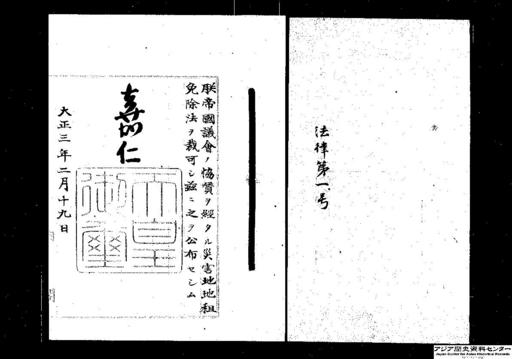 法律第一号
朕帝國議會ノ協賛ヲ經タル災害地地租
免除法ヲ裁可シ茲ニ之ヲ公布セシム
嘉仁
天皇御璽
大正三年二月十九日
アジア歴史資料センター
Japan Center for Asian Historical Records